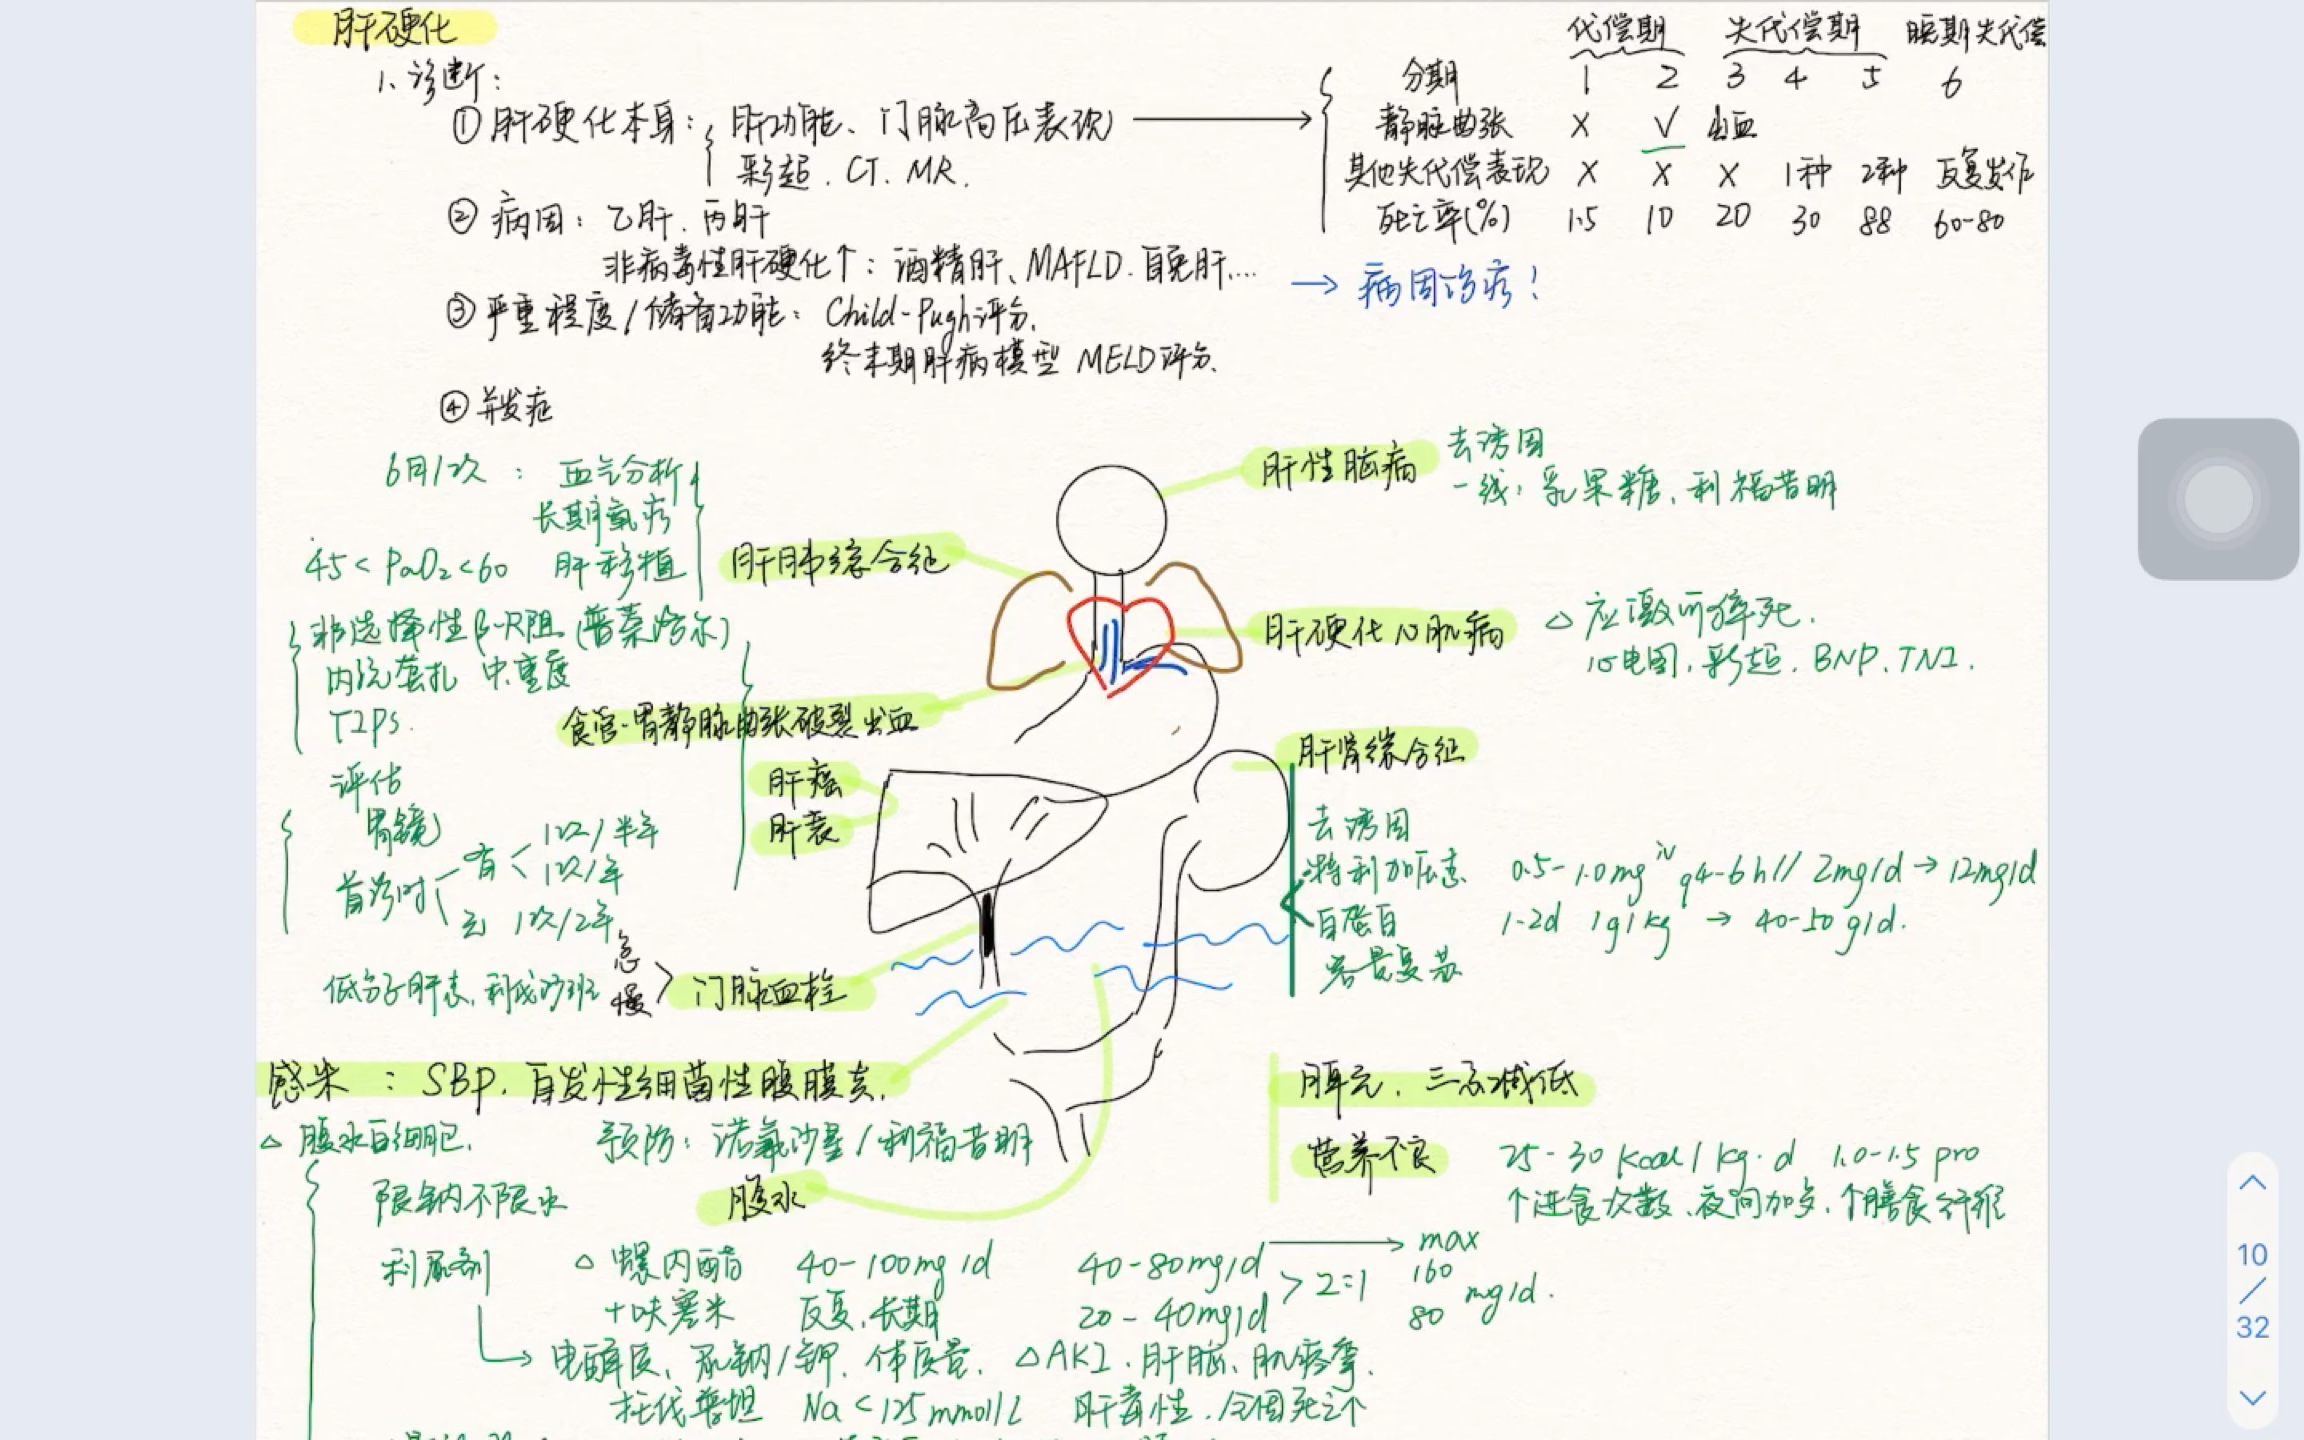 肝硬化
1、诊断：
①肝硬化本身：肝功能、门脉高压表现
彩超．CT．MR．
②病因：乙肝．丙肝
非病毒性肝硬化↑：酒精肝、MAFLD．自免肝．...
→ 病因治疗！
③严重程度/储备功能：Child-Pugh评分．
终末期肝病模型 MELD评分．
④并发症
代偿期 失代偿期 晚期失代偿
分期 1 2 3 4 5 6
静脉曲张 × √ 出血
其他失代偿表现 × × × 1种 2种 反复发作
死亡率(%) 1.5 10 20 30 88 60-80
肝性脑病 去诱因
一线：乳果糖、利福昔明
6月1次：血气分析
长期氧疗
45<PaO₂<60 肝移植
肝肺综合征
肝硬化心肌病 △应激可猝死．
心电图．彩超．BNP．TNI．
非选择性β-R阻(普萘洛尔)
内镜套扎 中.重度
TIPS．
食管-胃静脉曲张破裂出血
评估
胃镜
首诊时 有< 1次/半年
1次/年
无 1次/2年
肝癌
肝衰
肝肾综合征
去诱因
特利加压素 0.5-1.0mg iv q4-6h // 2mg/d → 12mg/d
白蛋白 1-2d 1g/kg → 40-50g/d．
容量复苏
低分子肝素、利伐沙班 急
慢 > 门脉血栓
感染：SBP．自发性细菌性腹膜炎．
△腹水白细胞． 预防：诺氟沙星/利福昔明
脾亢．三系减低
营养不良 25-30 kcal/kg·d 1.0-1.5 pro
↑进食次数、夜间加多．↑膳食纤维
腹水
限钠不限水
利尿剂 △螺内酯 40-100mg/d 40-80mg/d → max
+呋塞米 反复．长期 20-40mg/d > 2:1 160
80 mg/d．
电解质、尿钠/钾．体质量． △AKI．肝脑、肌痉挛．
托伐普坦 Na<125mmol/L 肝毒性．全因死亡↑